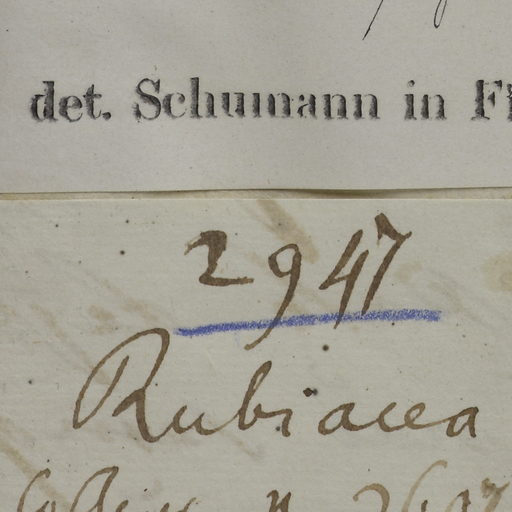 det. Schumann in
2947
Rubiacea